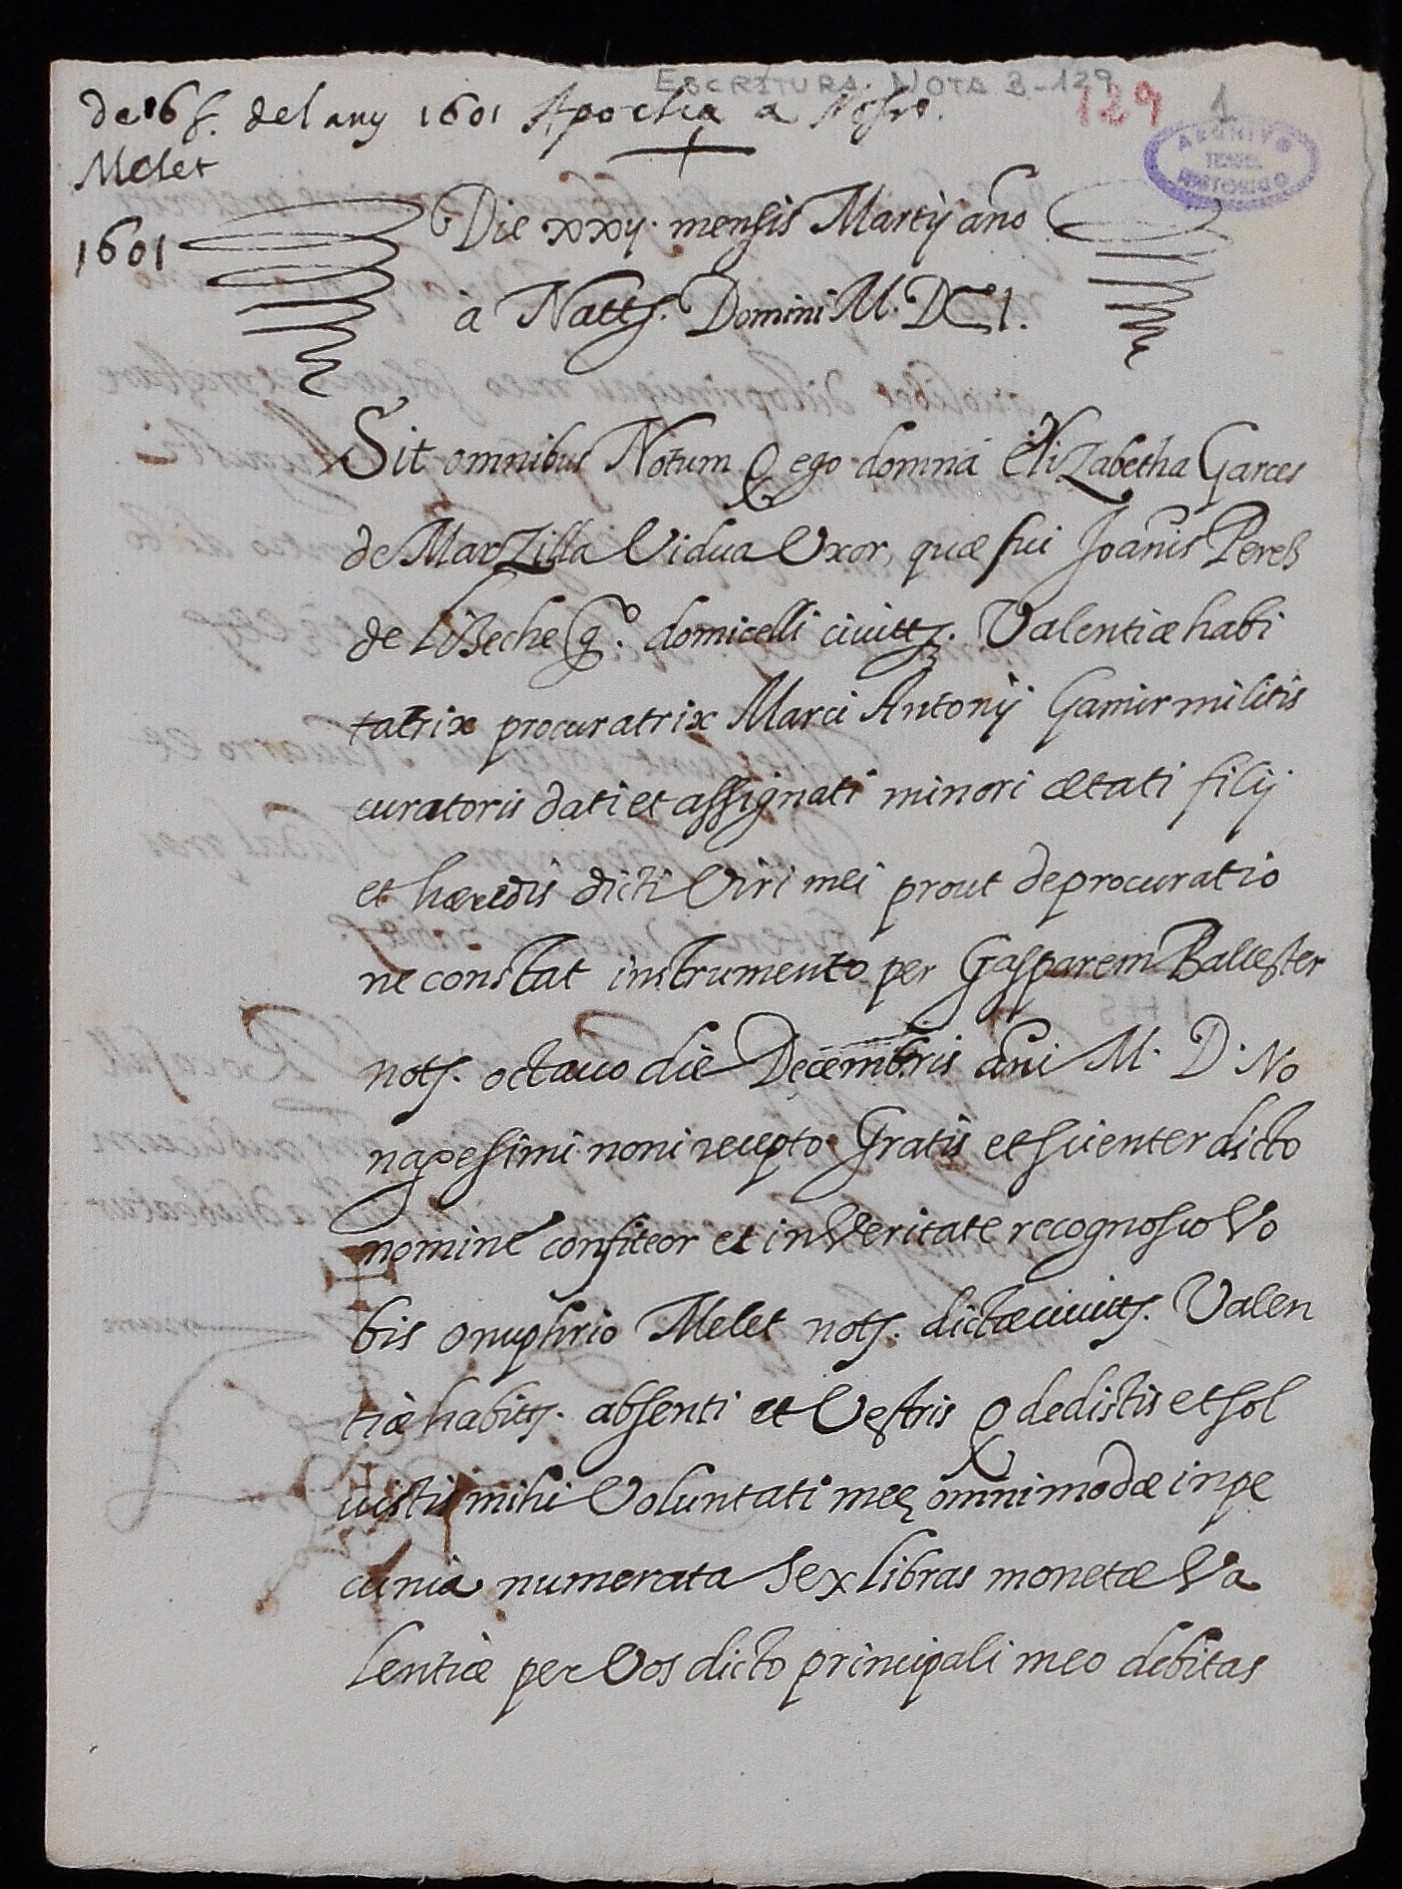 ESCRITURA. NOTA B-129
129 1
de 16 s. del any 1601 Apocha a Nofre.
Melet
ARCHIVO
HISTORICO
1601
Die xxij. mensis Martij año
à Natts. Domini M. DCI.
Sit omnibus Notum Q ego domna Elizabetha Garces
de MarZilla Vidua Uxor, quæ fui Joanis Pereb
de Libeche q.º domicelli ciuitts. Valentiæ habi
tatrix procuratrix Marci Antonij Gamir militis
curatoris dati et assignati minori ætati filij
et hæredis dicti Viri mei prout deprocuratio
ne constat instrumento per Gasparem Ballester
nots. octauo die Decembris ani M. D. No
nagesimi noni recepto Gratis et scienter dicto
nomine confiteor et in Veritate recognosco Vo
bis onuphrio Melet nots. dictæ ciuitts. Valen
tiæ habitts. absenti et Vestris Q dedistis et sol
uistis mihi Voluntati meę omnimodæ in pe
cunia numerata Sex libras monetæ Va
lentiæ per Vos dicto principali meo debitas